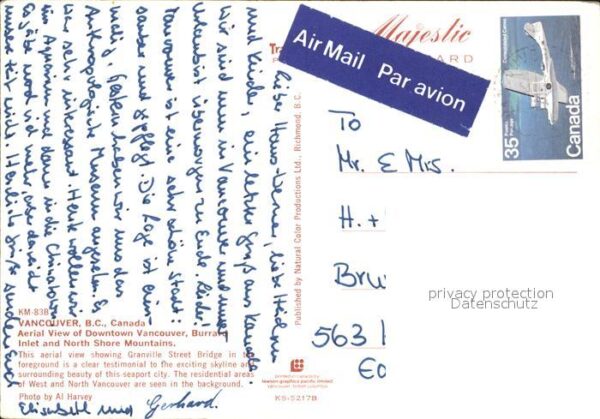 liebe Hans-Werner, liebe Heidrun
und Kinder, ein letzter Gruß aus Kanada.
Wir sind nun in Vancouver und unser
Urlaub ist übermorgen zu Ende. Leider!
Vancouver ist eine sehr schöne Stadt:
sauber und gepflegt. Die Lage ist ein-
malig. Gestern haben wir uns das
Anthropologische Museum angesehen. Es
war sehr interessant. Heute wollen wir
ins Aquarium und dann in die Chinatown.
Es gäbe noch viel mehr, aber dazu ist
unsere Zeit nicht. Herzliche Grüße senden Euch
Elisabeth und Gerhard.
KM-83B
VANCOUVER, B.C., Canada
Aerial View of Downtown Vancouver, Burrard
Inlet and North Shore Mountains.
This aerial view showing Granville Street Bridge in the
foreground is a clear testimonial to the exciting skyline and
surrounding beauty of this seaport city. The residential areas
of West and North Vancouver are seen in the background.
Photo by Al Harvey
Published by Natural Color Productions Ltd., Richmond, B.C.
KS-5217B
Majestic
Air Mail Par avion
35
Postes
Canada
To
Mr. & Mrs.
H. +
Brü
563
privacy protection
Datenschutz